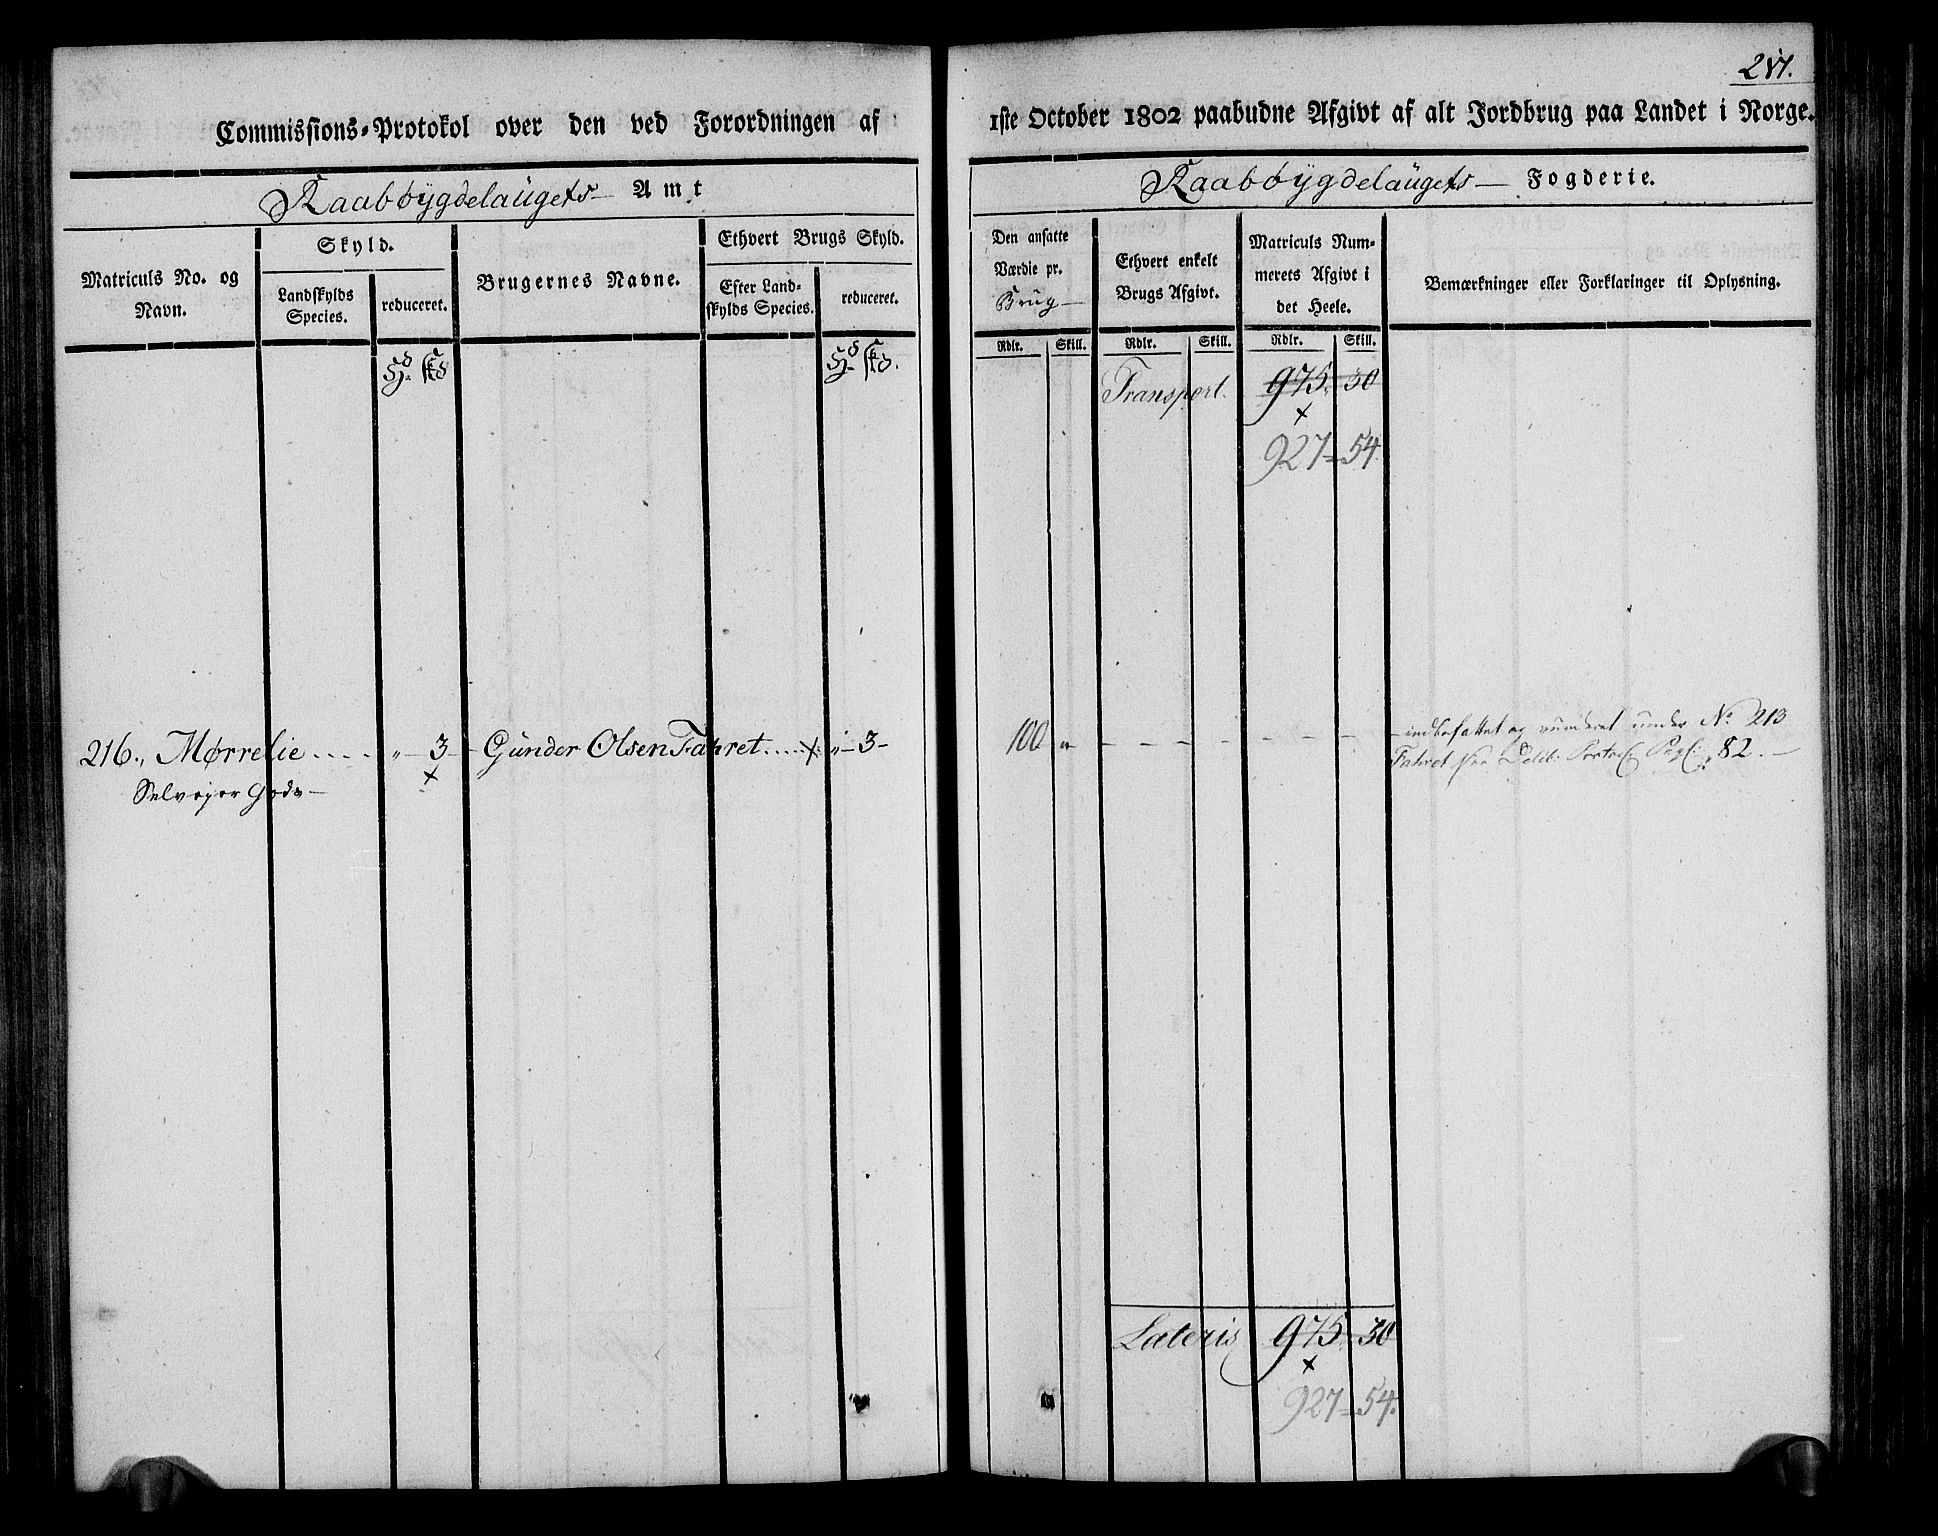 217.
Commissions-Protokol over den ved Forordningen af 1ste October 1802 paabudne Afgivt af alt Jordbrug paa Landet i Norge.
Raabøÿgdelaugets Amt
Raabøÿgdelaugets Fogderie.
Matriculs No. og Navn.
Skyld.
Landskylds Species.
reduceret.
Brugernes Navne.
Ethvert Brugs Skyld.
Efter Landskylds Species.
reduceret.
Den ansatte Værdie pr. Brug
Ethvert enkelt Brugs Afgivt.
Matriculs Nummerets Afgivt i det Heele.
Bemærkninger eller Forklaringer til Oplysning.
Rdlr. Skill. Rdlr. Skill. Rdlr. Skill.
Hd. skd
Hd. skd.
Transport. 975. 30
927 = 54.
216., Mørrelie .... „ 3 Gunder Olsen Fahret ..... „ 3 100 „ indbefattet og vurderet under No 213
Selveÿer Gods
Fahret see Delib: Protoc: Pag: 82.
Lateris 975. 30
927 = 54.